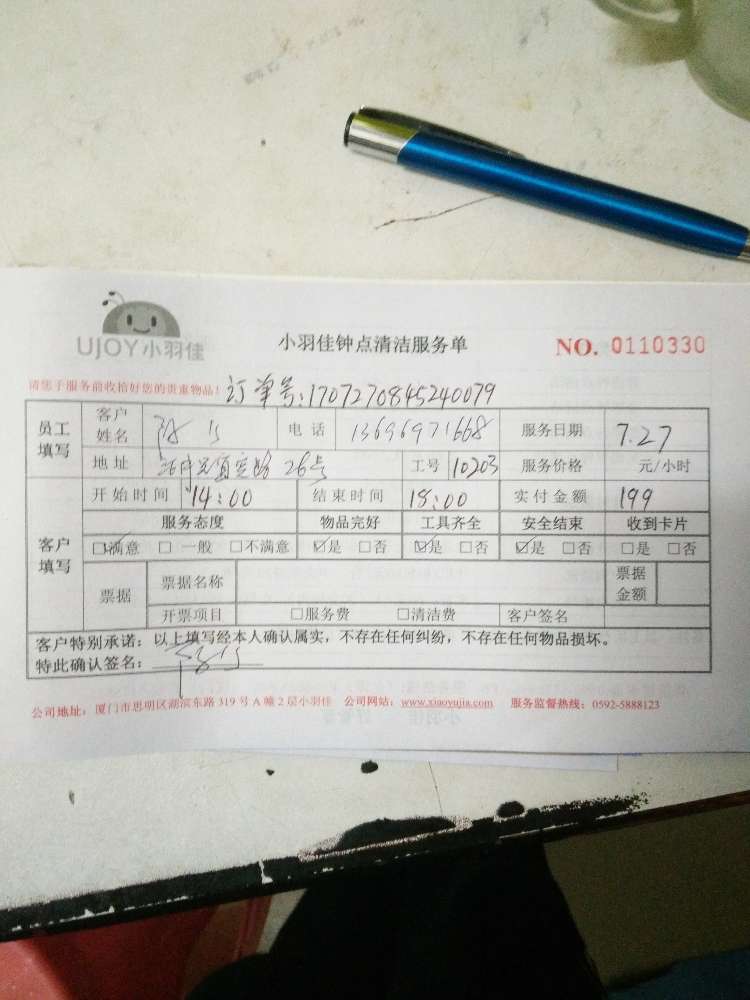 UJOY小羽佳
小羽佳钟点清洁服务单
NO. 0110330
请您于服务前收拾好您的贵重物品! 订单号:1707270845240079
员工填写 客户姓名 电话 13696971668 服务日期 7.27
地址 26号 工号 10203 服务价格 元/小时
客户填写 开始时间 14:00 结束时间 18:00 实付金额 199
服务态度 物品完好 工具齐全 安全结束 收到卡片
☑满意 □一般 □不满意 ☑是 □否 ☑是 □否 ☑是 □否 □是 □否
票据 票据名称 票据金额
开票项目 □服务费 □清洁费 客户签名
客户特别承诺：以上填写经本人确认属实，不存在任何纠纷，不存在任何物品损坏。
特此确认签名：
公司地址：厦门市思明区湖滨东路319号A幢2层小羽佳 公司网站：www.xiaoyujia.com 服务监督热线：0592-5888123